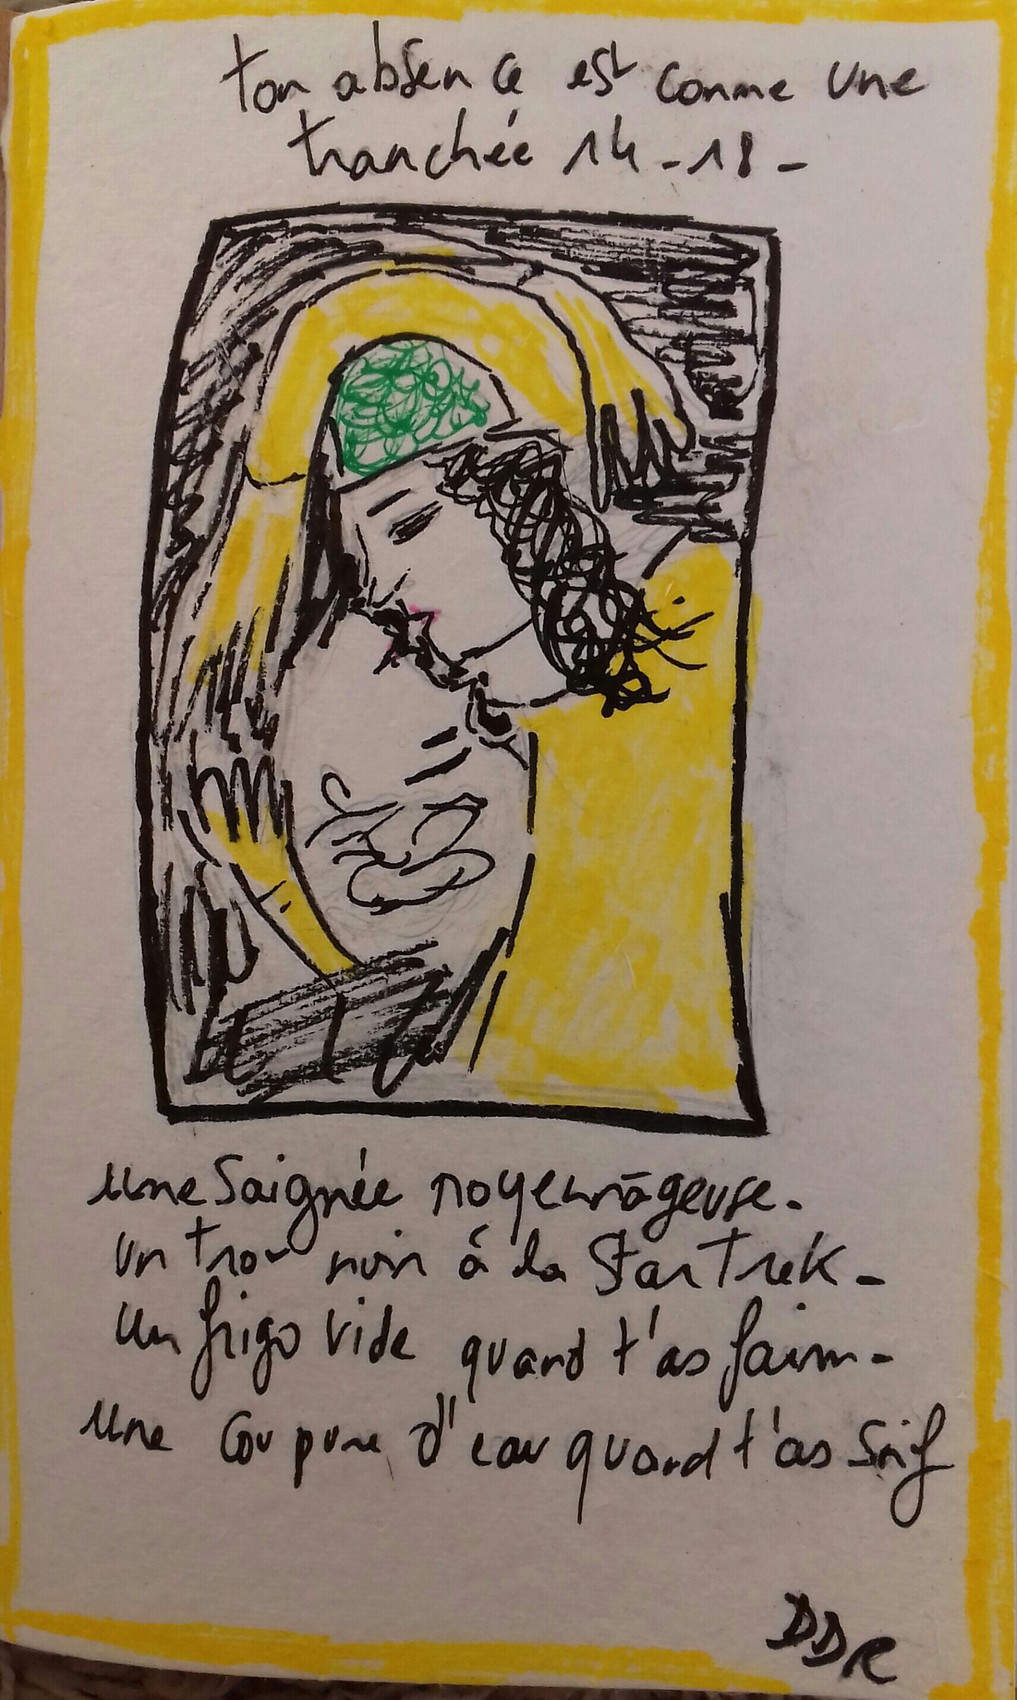 ton absence est comme une
tranchée 14-18-
une saignée moyenâgeuse.
un trou noir à la Star Trek-
un frigo vide quand t'as faim-
une coupure d'eau quand t'as soif
DDR